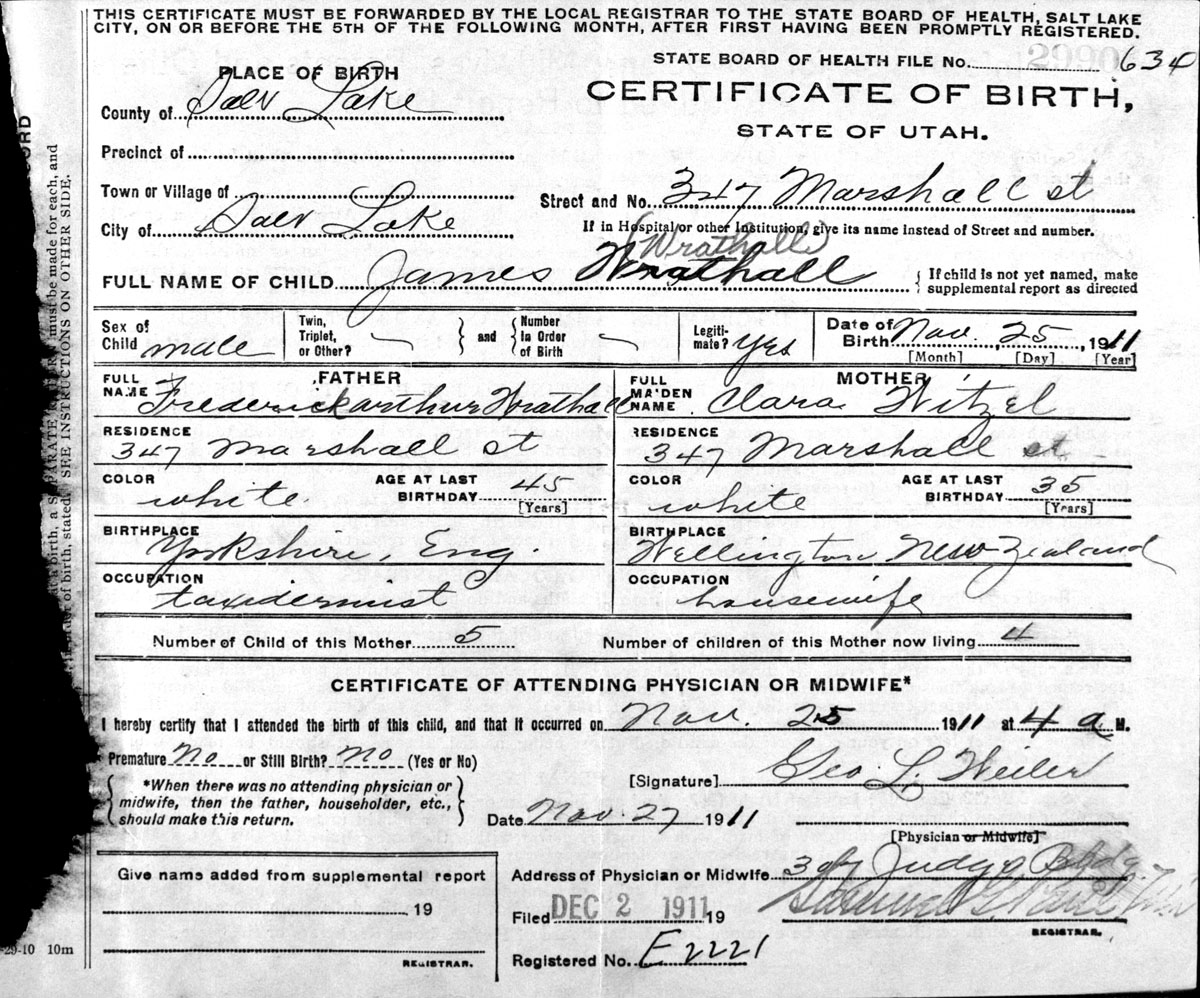 THIS CERTIFICATE MUST BE FORWARDED BY THE LOCAL REGISTRAR TO THE STATE BOARD OF HEALTH, SALT LAKE
CITY, ON OR BEFORE THE 5TH OF THE FOLLOWING MONTH, AFTER FIRST HAVING BEEN PROMPTLY REGISTERED.
STATE BOARD OF HEALTH FILE No. 634
PLACE OF BIRTH
CERTIFICATE OF BIRTH,
County of Salt Lake
STATE OF UTAH.
Precinct of
Town or Village of
Street and No. 347 Marshall st
City of Salt Lake
If in Hospital or other Institution, give its name instead of Street and number.
(Wrathall)
FULL NAME OF CHILD James Wrathall
{ If child is not yet named, make
supplemental report as directed
Sex of Child male
Twin, Triplet, or Other? — } and { Number in Order of Birth —
Legiti-mate? yes
Date of Birth Nov. 25, 1911
[Month] [Day] [Year]
FATHER
FULL NAME Frederick arthur Wrathall
MOTHER
FULL MAIDEN NAME Clara Witzel
RESIDENCE 347 Marshall st
RESIDENCE 347 Marshall st
COLOR white AGE AT LAST BIRTHDAY 45 [Years]
COLOR white AGE AT LAST BIRTHDAY 35 [Years]
BIRTHPLACE Yorkshire, Eng.
BIRTHPLACE Wellington New Zealand
OCCUPATION taxidermist
OCCUPATION housewife
Number of Child of this Mother 5
Number of children of this Mother now living 4
CERTIFICATE OF ATTENDING PHYSICIAN OR MIDWIFE*
I hereby certify that I attended the birth of this child, and that it occurred on Nov. 25 1911 at 4 a M.
Premature No or Still Birth? No (Yes or No)
[Signature] Geo. L. Weiler
{ *When there was no attending physician or
midwife, then the father, householder, etc.,
should make this return. }
Date Nov. 27 1911
[Physician or Midwife]
Give name added from supplemental report
19
REGISTRAR.
Address of Physician or Midwife 307 Judge Bldg.
Filed DEC 2 1911 19
REGISTRAR.
Registered No. E2221
29-10 10m
a birth, a SEPARATE RETURN must be made for each, and
order of birth, stated. SEE INSTRUCTIONS ON OTHER SIDE.